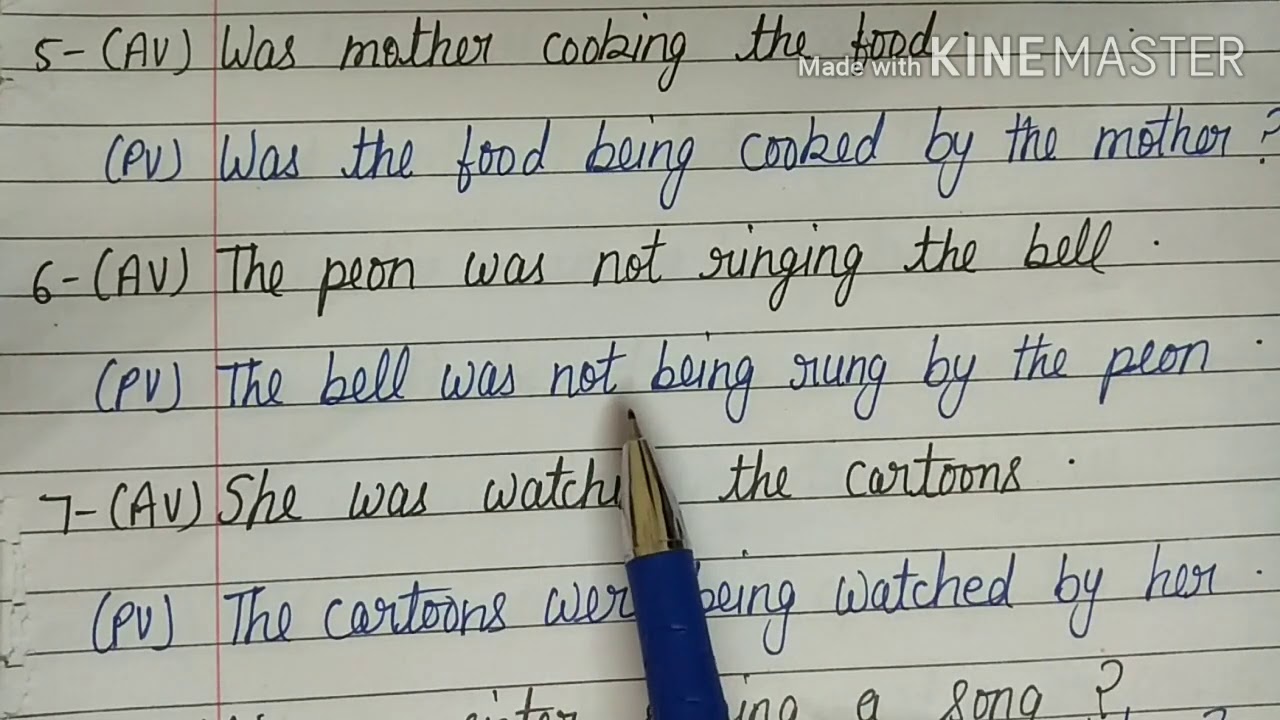 5-(AV) Was mother cooking the food.
Made with KINEMASTER
(PV) Was the food being cooked by the mother?
6-(AV) The peon was not ringing the bell.
(PV) The bell was not being rung by the peon.
7-(AV) She was the cartoons.
(PV) The cartoons being watched by her.
a song?